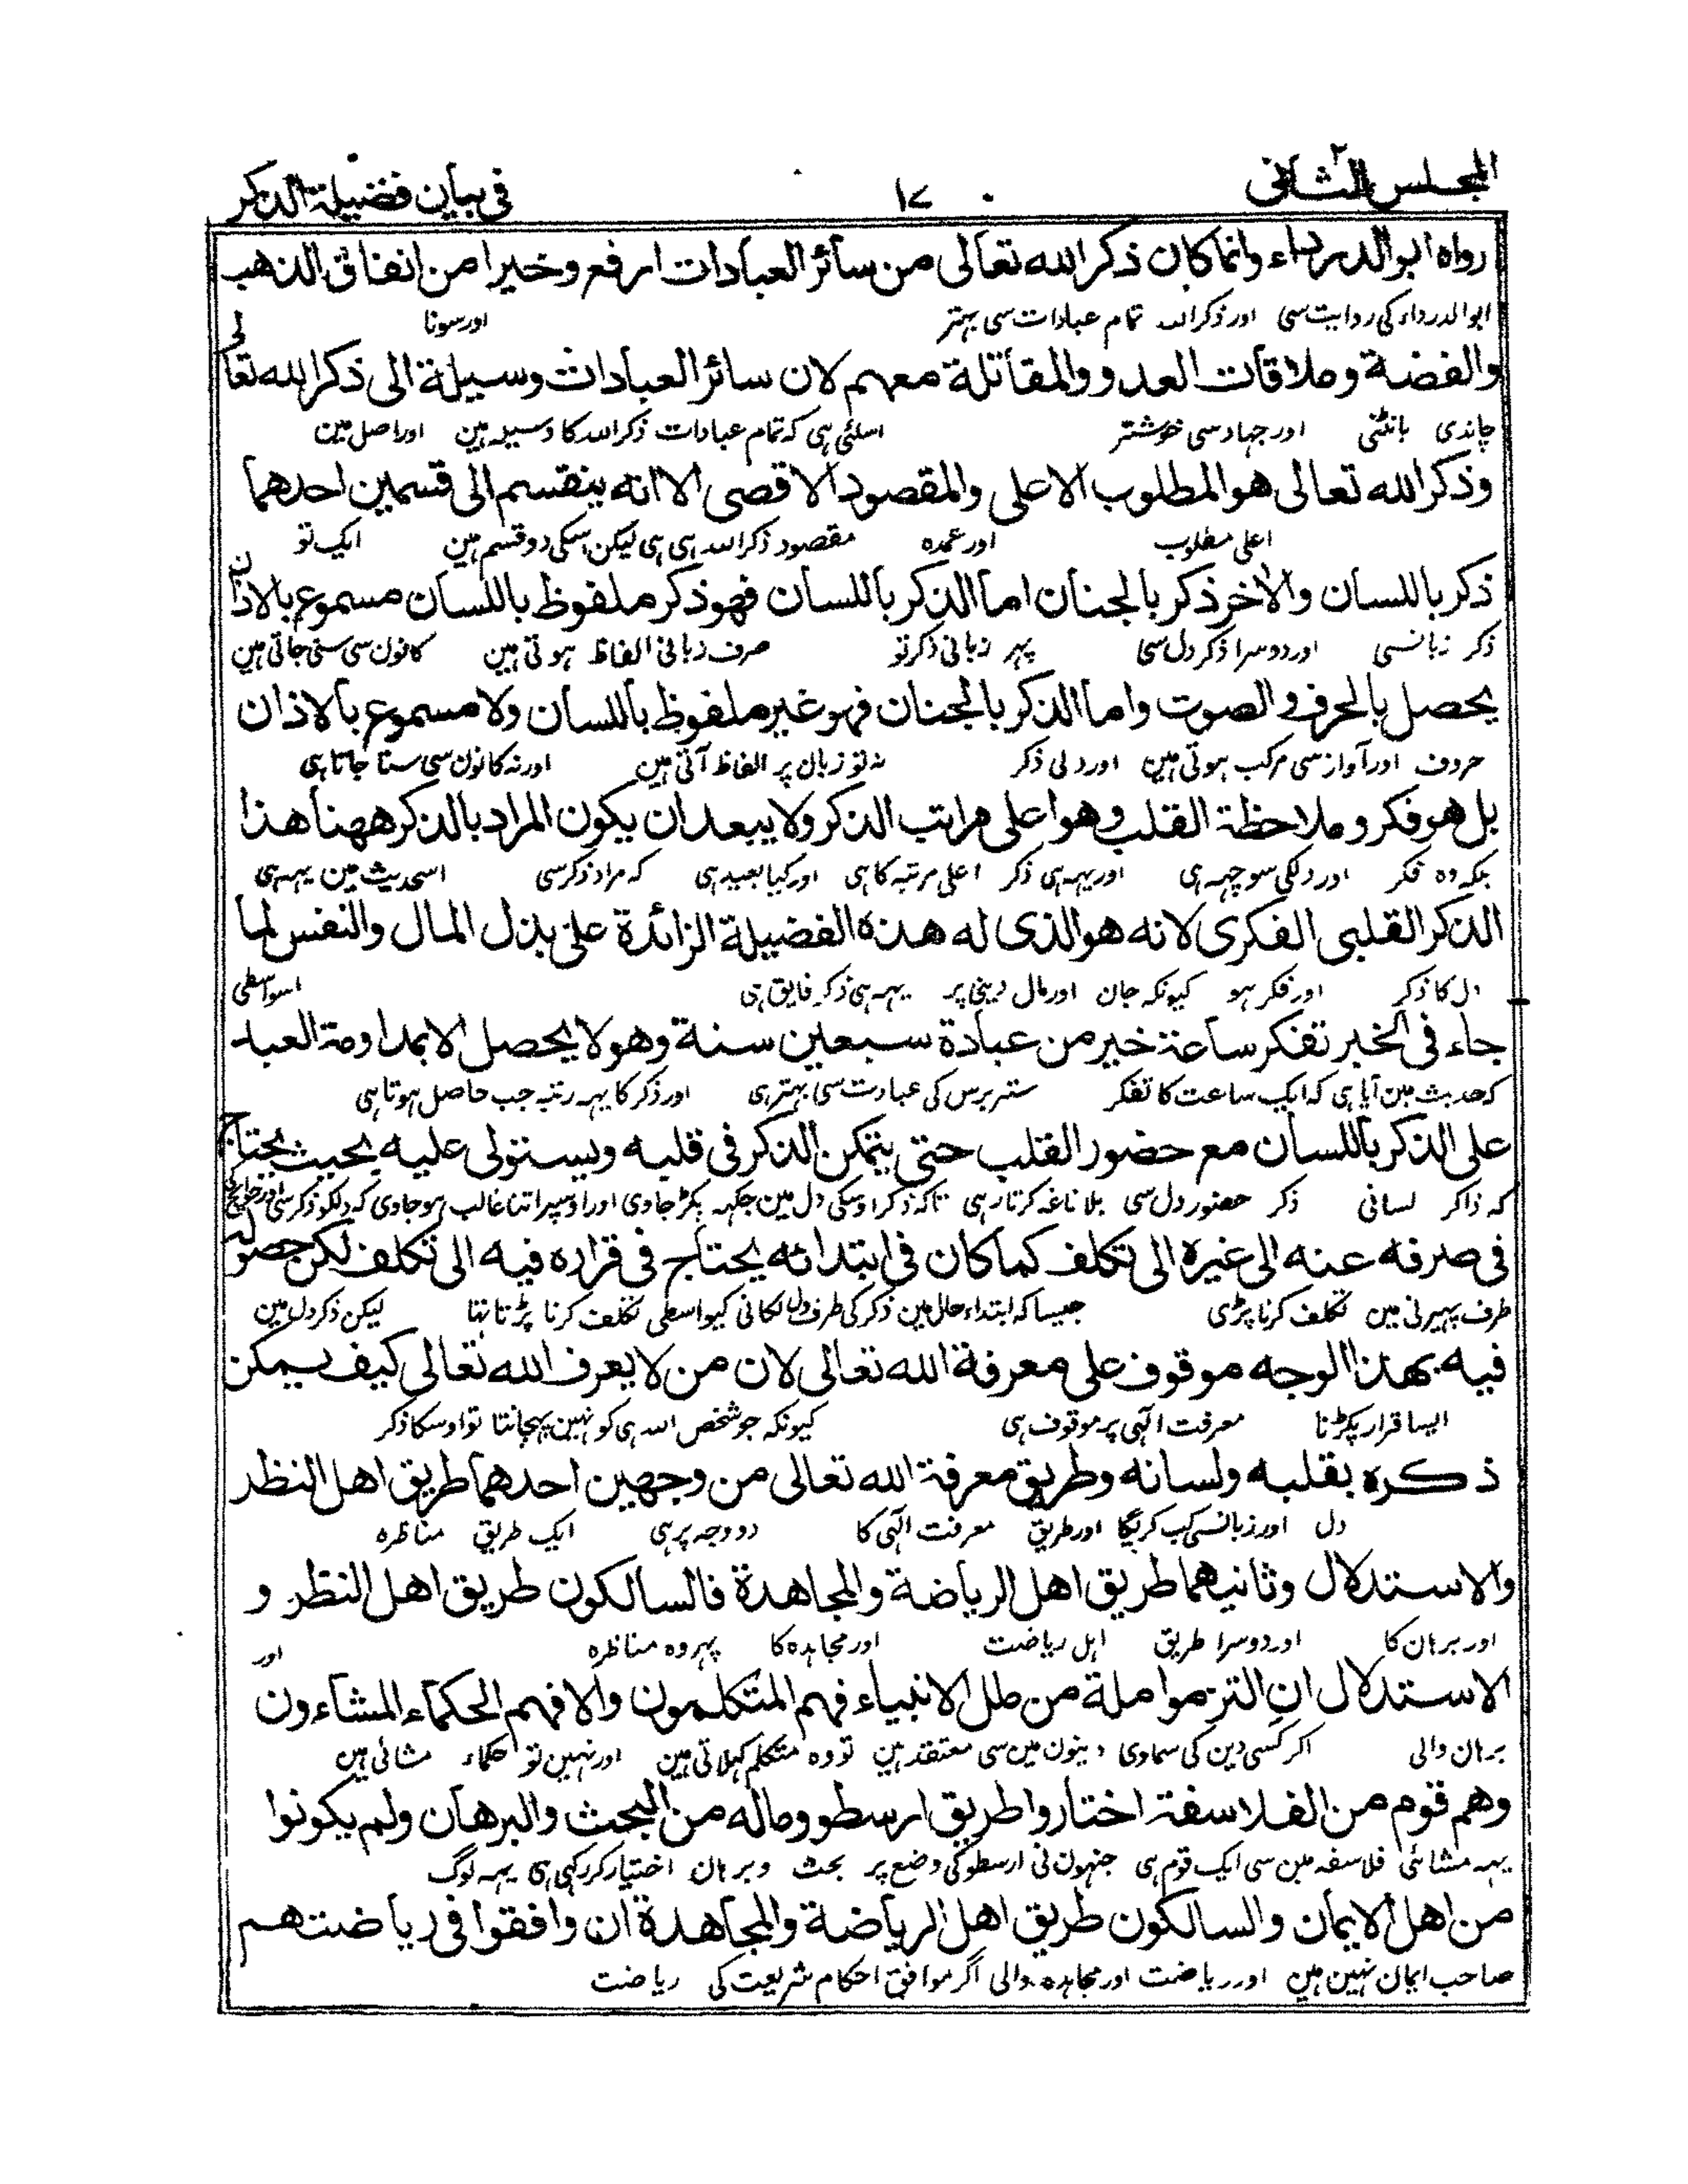 المجلس الثانى ١٧ فى بيان فضيلة الذكر
رواه ابو الدرداء وانما كان ذكر الله تعالى من سائر العبادات ارفع وخيرا من انفاق الذهب
ابوالدرداء کی روایت سی اور ذکر اللہ تمام عبادات سی بہتر اور سونا
والفضة وملاقات العدو والمقاتلة معهم لان سائر العبادات وسيلة الى ذكر الله تعالى
چاندی بانٹنی اور جہاد سی خوشتر اسلئی ہی کہ تمام عبادات ذکر اللہ کا وسیلہ ہین اور اصل مین
وذكر الله تعالى هو المطلوب الاعلى والمقصود الاقصى الا انه ينقسم الى قسمين احدهما
اعلی مطلوب اور عمدہ مقصود ذکر اللہ ہی ہی لیکن اسکی دو قسم ہین ایک تو
ذكر باللسان والاخر ذكر بالجنان اما الذكر باللسان فهو ذكر ملفوظ باللسان مسموع بالاذان
ذکر زبانسی اور دوسرا ذکر دل سی پہر زبانی ذکر تو صرف زبانی الفاظ ہوتی ہین کانون سی سنی جاتی ہین
يحصل بالحرف والصوت واما الذكر بالجنان فهو غير ملفوظ باللسان ولا مسموع بالاذان
حروف اور آواز سی مرکب ہوتی ہین اور دلی ذکر نہ تو زبان پر الفاظ آتی ہین اور نہ کانون سی سنا جاتا ہی
بل هو فكر وملاحظة القلب وهو اعلى مراتب الذكر ولا يبعد ان يكون المراد بالذكر ههنا هذا
بلکہ وہ فکر اور دلکی سوچہہ ہی اور یہہ ہی ذکر اعلی مرتبہ کا ہی اور کیا بعید ہی کہ مراد ذکر سی اسحدیث مین یہہ ہی
الذكر القلبى الفكرى لانه هو الذى له هذه الفضيلة الزائدة على بذل المال والنفس لما
دل کا ذکر اور فکر ہو کیونکہ جان اور مال دینی پر یہہ ہی ذکر فایق ہی اسواسطی
جاء فى الخبر تفكر ساعة خير من عبادة سبعين سنة وهو لا يحصل الا بمداومة العبد
کہ حدیث مین آیا ہی کہ ایک ساعت کا تفکر ستر برس کی عبادت سی بہتر ہی اور ذکر کا یہہ رتبہ جب حاصل ہوتا ہی
على الذكر باللسان مع حضور القلب حتى يتمكن الذكر فى قلبه ويستولى عليه بحيث يحتاج
کہ ذاکر لسانی ذکر حضور دل سی بلا ناغہ کرتا رہی تاکہ ذکر اوسکی دل مین جگہہ پکڑ جاوی اور اوسپر اتنا غالب ہو جاوی کہ دلکو ذکر سی
فى صرفه عنه الى غيره الى تكلف كما كان فى ابتدائه يحتاج فى قراره فيه الى تكلف لكن حصوله
طرف پہیرنی مین تکلف کرنا پڑی جیسا کہ ابتداء حال مین ذکر کی طرف دل لگانی کیواسطی تکلف کرنا پڑتا تہا لیکن ذکر دل مین
فيه بهذا الوجه موقوف على معرفة الله تعالى لان من لا يعرف الله تعالى كيف يمكن
ایسا قرار پکڑنا معرفت الٰہی پر موقوف ہی کیونکہ جو شخص اللہ ہی کو نہین پہچانتا تو اوسکا ذکر
ذكره بقلبه ولسانه وطريق معرفة الله تعالى من وجهين احدهما طريق اهل النظر
دل اور زبانسی کب کریگا اور طریق معرفت الٰہی کا دو وجہ پر ہی ایک طریق مناظرہ
والاستدلال وثانيهما طريق اهل الرياضة والمجاهدة فالسالكون طريق اهل النظر و
اور برہان کا اور دوسرا طریق اہل ریاضت اور مجاہدہ کا پہر وہ مناظرہ اور
الاستدلال ان التزموا ملة من ملل الانبياء فهم المتكلمون والا فهم الحكماء المشاءون
برہان والی اگر کسی دین کی سماوی دینون مین سی معتقد ہین تو وہ متکلم کہلاتی ہین اور نہین تو حکماء مشائی ہین
وهم قوم من الفلاسفة اختاروا طريق ارسطو وماله من البحث والبرهان ولم يكونوا
یہہ مشائی فلاسفہ مین سی ایک قوم ہی جنہون نی ارسطو کی وضع پر بحث و برہان اختیار کر رکہی ہی یہہ لوگ
من اهل الايمان والسالكون طريق اهل الرياضة والمجاهدة ان وافقوا فى رياضتهم
صاحب ایمان نہین ہین اور ریاضت اور مجاہدہ والی اگر موافق احکام شریعت کی ریاضت